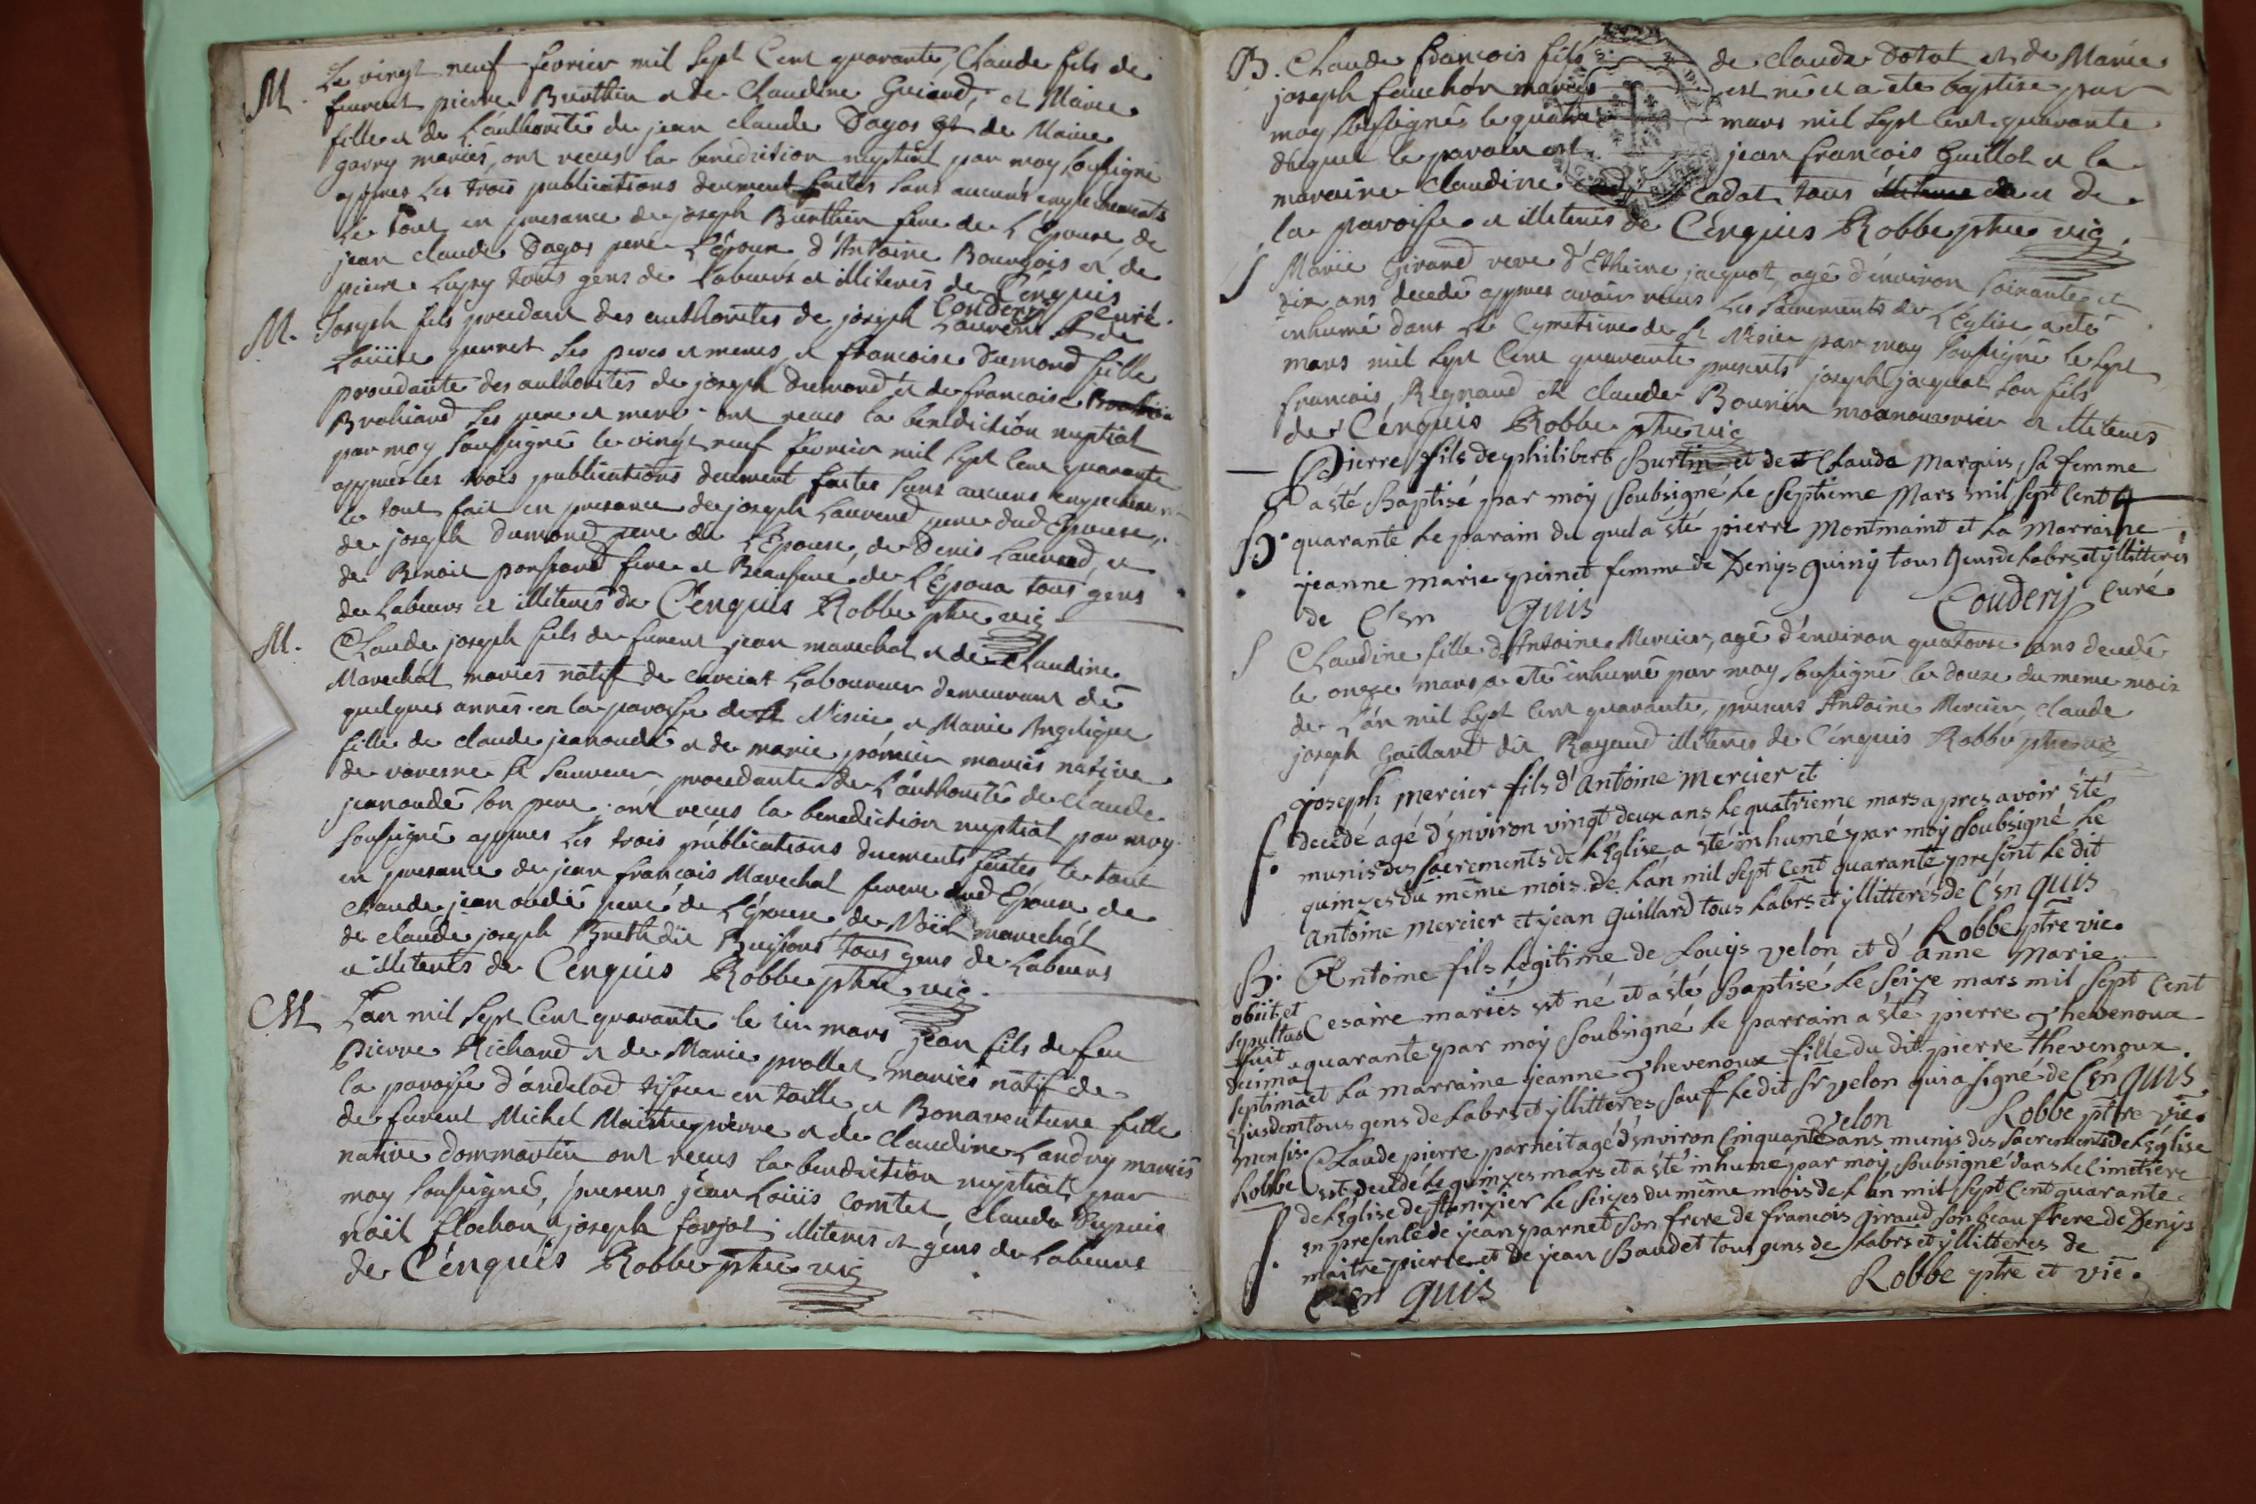 M. Le vingt neuf fevrier mil sept Cent quarante, Claude fils de
furent pierre Burthin et de Claudine Guiand, et Marie
fille et de L'authorité de jean claude Dagos et de Marie
gavry mariés, ont recus la benediction nuptial par moy soussigné
appres les trois publications deument faites sans aucuns empechements
le tout en presance de joseph Burthin frere de L'Epouse de
jean claude Dagos pere L'épouse d'Antoine Bourgois et de
pierre Lupy tous gens de Labeurs et illiterés de Cénquis
Coudery curé.
M. Joseph fils procedant des authorités de joseph Laurent et de
Loüise perret ses peres et meres, et francoise Dumond fille
procedante des authorités de joseph Dumond et de francoise
Brohiand ses pere et mere ont recus la benediction nuptial
par moy soussigné le vingt neuf fevrier mil sept Cent quarante
appres les trois publications deument faites sans aucuns empechement
le tout fait en presance de joseph Laurend pere dud Epouse,
de joseph Dumond pere de L'Epouse, de Denis Laurend, et
de Benoit ponsard frere et Beaufrere de L'Epoux tous gens
de Labeurs et illiterés de Cénquis Robbe ptre vic
M. Claude joseph fils de furent jean marechal et de Claudine
Marechal mariés natif de curciat Laboureur demeurant dé
quelques annés en la paroisse de st Nisiér et Marie Angelique
fille de claude jeanoudé et de marie pernin mariés native
de varenne st sauveur procedante de L'authorité de claude
jeanoudé son pere ont recus la benediction nuptial par moy
soussigné appres les trois publications duements faites le tout
en presance de jean françois Marechal frere dud Epoux de
claude jeanoudé pere de L'Epouse de Noël marechal
de claude joseph Breth dit Buissons tous gens de Labeurs
et illiterés de Cénquis Robbe ptre vic.
M L'an mil sept Cent quarante le un mars jean fils de feu
Pierre Richard et de Marie prollet mariés natif de
la paroisse d'andelod tissier en toille et Bonaventure fille
de furent Michel Maitrepierre et de Claudine Landry mariés
native dommartin ont recus la benediction nuptial par
moy soussigné, presens jean Loüis comtet, Claude Dupuis
noël flochon, joseph forjot illiterés et géns de Labeurs
de Cénquis Robbe ptre vic
B. Claude francois fils de claude Dotat et de Marie
joseph fauchon mariés est né et a eté baptisé par
moy soussignés le quatre mars mil sept Cent quarante
duquel le parain est jean francois Guillot et la
maraine Claudine Cadot tous et de
la paroisse et illiterés de Cénquis Robbe ptre vic.
S Marie Girand veve d'Ethiene jacquot, agé d'environ soixante et
dix ans decedé appres avoir recus Les sacrements de L'Eglise a eté
inhumé dans Le Cymetiere de st Nisier par moy soussigné le sept
mars mil sept Cent quarante presents joseph jacquot son fils
francois Regnaud et claude Bourin manouvrier et illiterés
de Cénquis Robbe ptre vic
Pierre fils de philibert Burtin et de Claude Marquis, sa femme
a été Baptisé par moÿ soubsigné le septieme Mars mil sept Cent
B. quarante Le parain du quel a été pierre Montmaint et La Marraine
jeanne marie pernet femme de Denys guiny tous gens de Labrs et yllitterés
de C'En quis Coudery Curé
S Claudine fille d'Antoine Mercier, agé d'environ quatorse ans decedé
le onze mars a eté inhumé par moy soussigné le douze du meme mois
de L'an mil sept Cent quarante, presens Antoine Mercier, Claude
joseph Gaillard dit Rayaud illiteres de Cénquis Robbe ptre vic
joseph mercier fils d'Antoine mercier et
S. decédé agé d'Environ vingt deux ans Le quatrieme mars apres avoir été
munis des sacrements de l'Eglise a été inhumé par moÿ soubsigné Le
quinzes du même mois de L'an mil sept Cent quarante present Le dit
Antoine Mercier et jean guillard tous Labrs et yllitterés de C'En quis
Robbe ptre vic.
B. Antoine fils Legitime de Louÿs velon et d'anne Marie
Cesaire mariés est né et a été Baptisé le seize mars mil sept Cent
quarante par moÿ soubsigné Le parrain a été pierre thevenoux
et La marraine jeanne thevenoux fille du dit pierre thevenoux
tous gens de Labrs et yllitteres sauf Le dit sr velon qui a signé de C'En quis
velon Robbe ptre vic.
obiit et
sepultus
fuit
decima
septima
ejusdem
mensis.
Robbe
S. Claude pierre parnet agé d'Environ Cinquante ans munis des sacrements de L'Eglise
est decédé Le quinzes mars et a été inhumé par moÿ soubsigné dans le Cimetiere
de L'Eglise de st nizier Le seizes du même mois de L'an mil sept Cent quarante
en presence de jean parnet son frere de francois giraud son beau frere de Denys
maitrepierre et de jean Baudet tous gens de Labrs et yllitteres de
C'En quis Robbe ptre et vic.